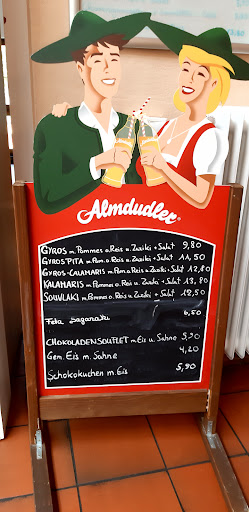 Almdudler
GYROS m. Pommes o. Reis u. Zaziki + Salat 9,80
GYROS PITA m. Pom. o. Reis u. Zaziki + Salat 11,50
GYROS-CALAMARIS m. Pom. o. Reis u. Zaziki + Salat 12,80
KALAMARIS m. Pommes o. Reis u. Zaziki + Salat 13,80
SOUVLAKI m. Pommes o. Reis u. Zaziki + Salat 12,50
Feta Saganaki 6,50
CHOKOLADENSOUFLET m. Eis u. Sahne 5,90
Gem. Eis m. Sahne 4,20
Schokokuchen m. Eis 5,90